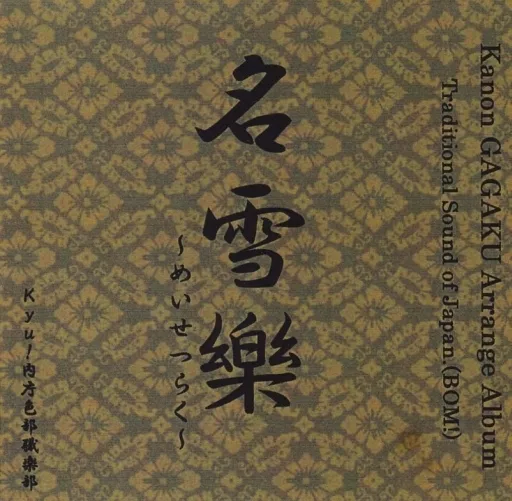 Kanon GAGAKU Arrange Album
Traditional Sound of Japan.(BOM!)
名雪樂
～めいせつらく～
Kyu!内序色部職楽部